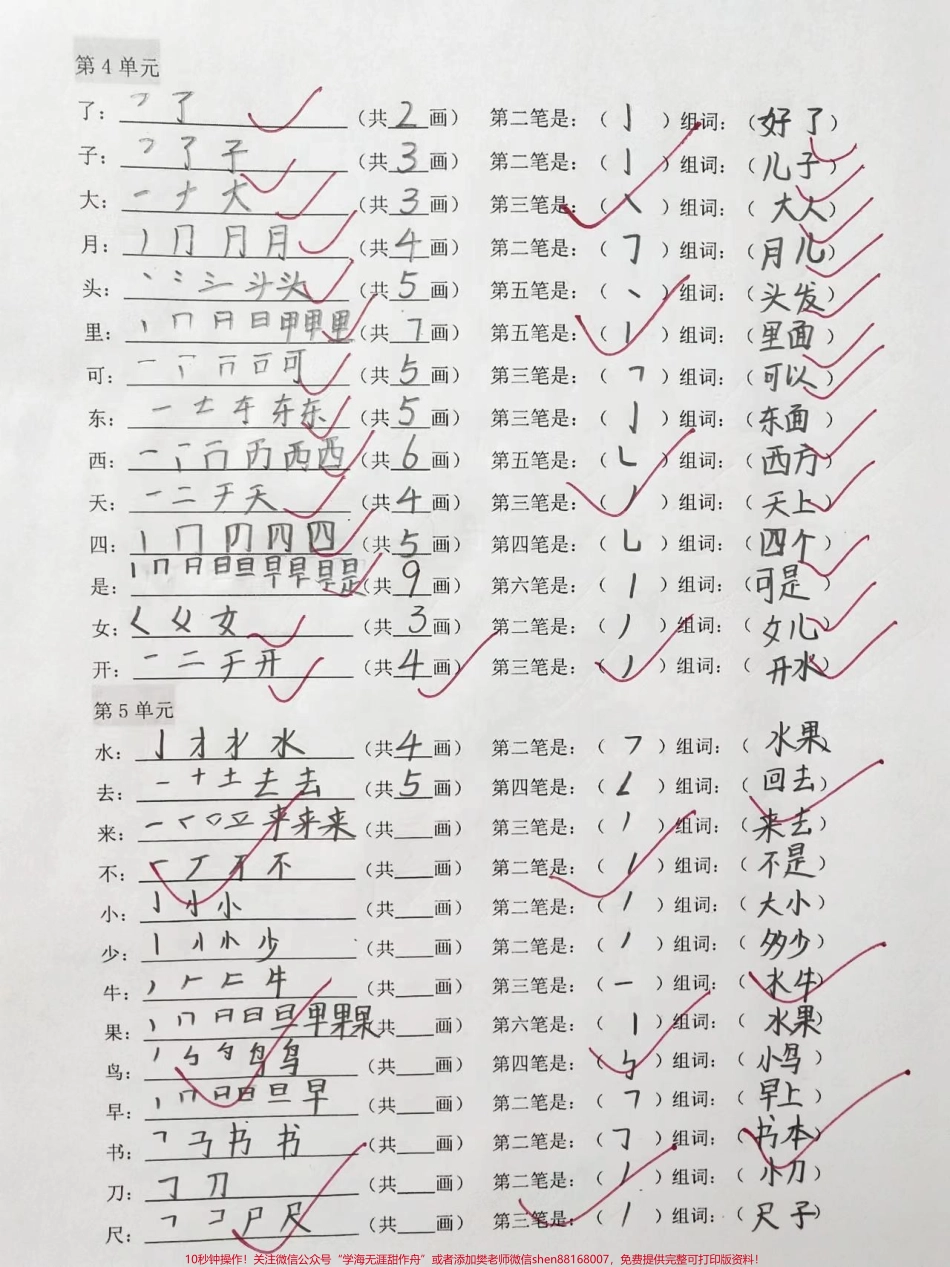 第4单元
了：㇇ 了 （共2画） 第二笔是：（亅）组词：（好了）
子：㇇ 了 子 （共3画） 第二笔是：（亅）组词：（儿子）
大：一 ナ 大 （共3画） 第三笔是：（㇏）组词：（大人）
月：丿 ⺆ 月 月 （共4画） 第二笔是：（㇆）组词：（月儿）
头： 头头 （共5画） 第五笔是：（丶）组词：（头发）
里：丨 冂 日 日 甲 里 （共7画） 第五笔是：（丨）组词：（里面）
可：一 丅 可 （共5画） 第三笔是：（㇕）组词：（可以）
东：一 东 东 （共5画） 第三笔是：（亅）组词：（东面）
西：一 丅 襾 西 西 （共6画） 第五笔是：（㇄）组词：（西方）
天：一 二 チ 天 （共4画） 第三笔是：（丿）组词：（天上）
四：丨 冂 四 四 （共5画） 第四笔是：（㇄）组词：（四个）
是：丨 冂 日 日 旦 早 是 是 （共9画） 第六笔是：（丨）组词：（可是）
女：㇛ 女 女 （共3画） 第二笔是：（丿）组词：（女儿）
开：一 二 チ 开 （共4画） 第三笔是：（丿）组词：（开水）
第5单元
水：亅 水 （共4画） 第二笔是：（㇇）组词：（水果）
去：一 十 土 去 去 （共5画） 第四笔是：（㇜）组词：（回去）
来：一 来 来 来 （共 画） 第三笔是：（丿）组词：（来去）
不：一 丆 不 不 （共 画） 第二笔是：（丿）组词：（不是）
小：亅 小 小 （共 画） 第二笔是：（丿）组词：（大小）
少：丨 小 小 少 （共 画） 第二笔是：（丿）组词：（多少）
牛：丿 牛 （共 画） 第三笔是：（一）组词：（水牛）
果：丨 冂 日 日 旦 甲 果 果 （共 画） 第六笔是：（丨）组词：（水果）
鸟：丿 鸟 鸟 （共 画） 第四笔是：（㇉）组词：（小鸟）
早：丨 冂 日 日 旦 早 （共 画） 第二笔是：（㇕）组词：（早上）
书：㇕ 书 书 （共 画） 第二笔是：（㇆）组词：（书本）
刀：㇆ 刀 （共 画） 第二笔是：（丿）组词：（小刀）
尺：㇕ コ 尸 尺 （共 画） 第三笔是：（丿）组词：（尺子）
10秒钟操作！关注微信公众号“学海无涯甜作舟”或者添加樊老师微信shen88168007，免费提供完整可打印版资料！